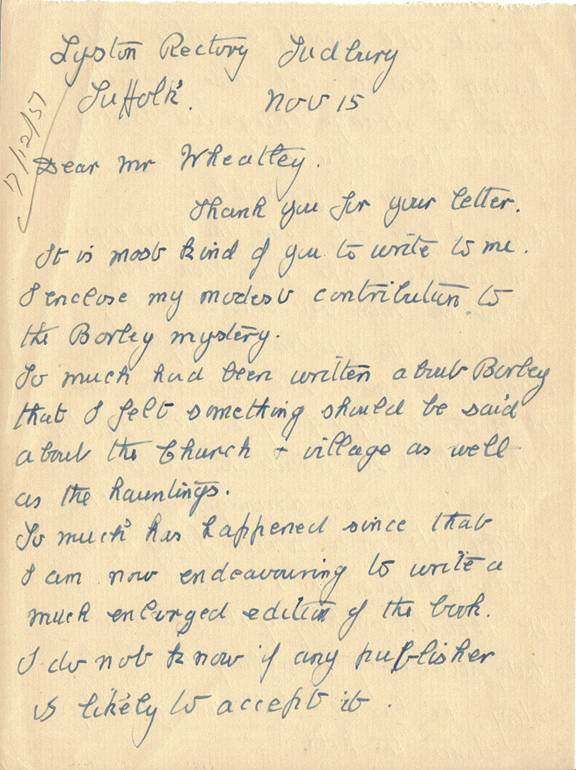 Lyston Rectory Sudbury
Suffolk. Nov 15
17/12/57
Dear Mr Wheatley.
Thank you for your letter.
It is most kind of you to write to me.
I enclose my modest contribution to
the Borley mystery.
So much had been written about Borley
that I felt something should be said
about the Church + village as well
as the hauntings.
So much has happened since that
I am now endeavouring to write a
much enlarged edition of the book.
I do not know if any publisher
is likely to accept it.